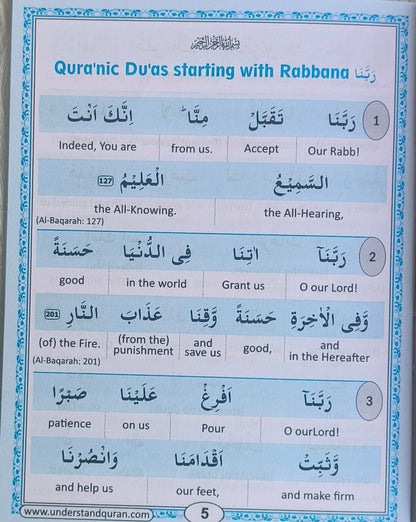 بِسْمِ اللهِ الرَّحْمٰنِ الرَّحِيْمِ
Qura'nic Du'as starting with Rabbana رَبَّنَا
1 رَبَّنَا تَقَبَّلْ مِنَّا ؕ اِنَّكَ اَنْتَ
Indeed, You are from us. Accept Our Rabb!
السَّمِيْعُ الْعَلِيْمُ 127
the All-Knowing. the All-Hearing,
(Al-Baqarah: 127)
2 رَبَّنَآ اٰتِنَا فِى الدُّنْيَا حَسَنَةً
good in the world Grant us O our Lord!
وَّفِى الْاٰخِرَةِ حَسَنَةً وَّقِنَا عَذَابَ النَّارِ 201
(of) the Fire. (from the) punishment and save us good, and in the Hereafter
(Al-Baqarah: 201)
3 رَبَّنَآ اَفْرِغْ عَلَيْنَا صَبْرًا
patience on us Pour O ourLord!
وَّثَبِّتْ اَقْدَامَنَا وَانْصُرْنَا
and help us our feet, and make firm
www.understandquran.com 5